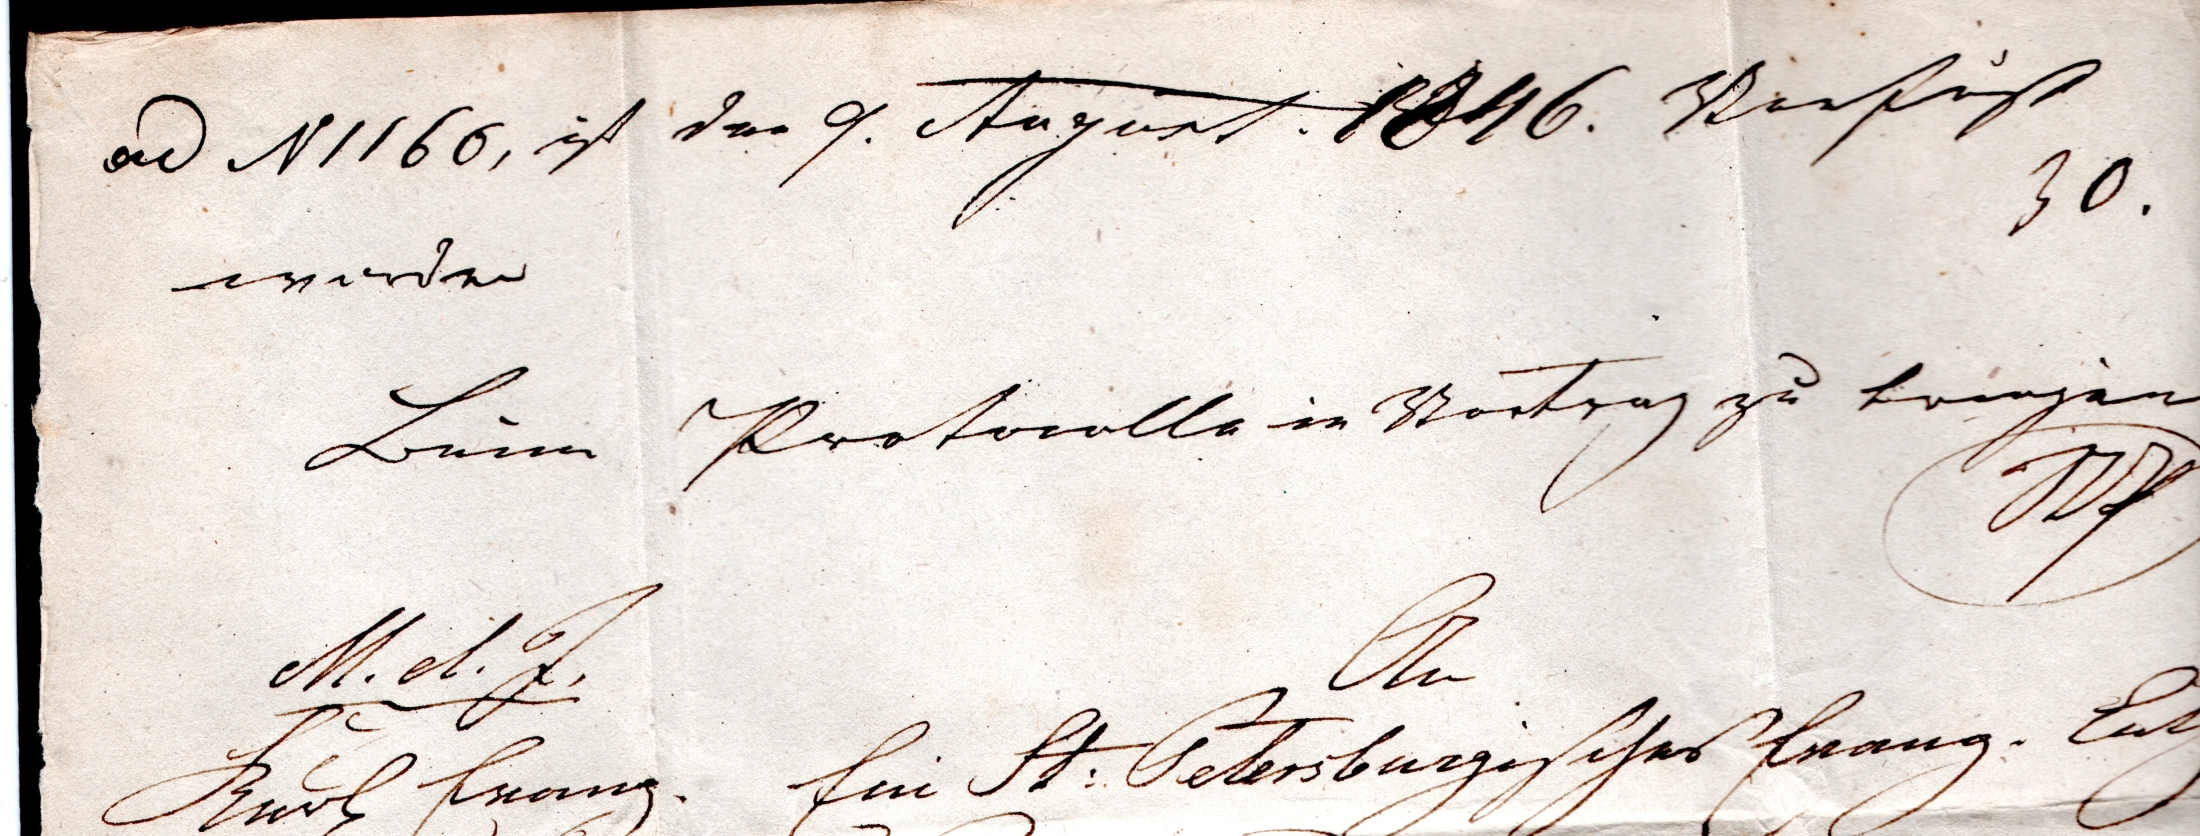 ad N 1166, ist den 9. August. 1846. Verfügt
30.
worden
Beim Protocolle in Vortrag zu bringen
M. d. J.
An
Kurl. Evang. Ein St. Petersburgisches Evang. Luth